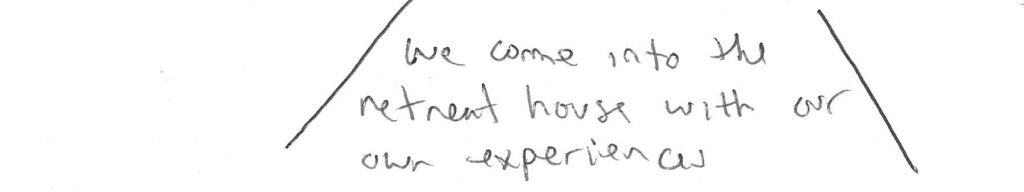 we come into the
retreat house with our
own experiences